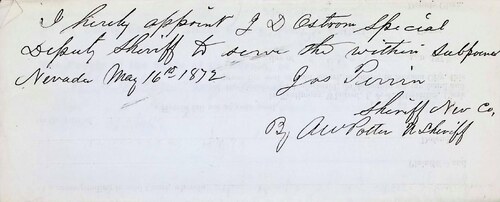 I hereby appoint J D Ostrom Special
Deputy Sheriff to serve the within subpoena
Nevada May 16th 1872
Jas Perrin
Sheriff Nev Co,
By AW Potter U Sheriff